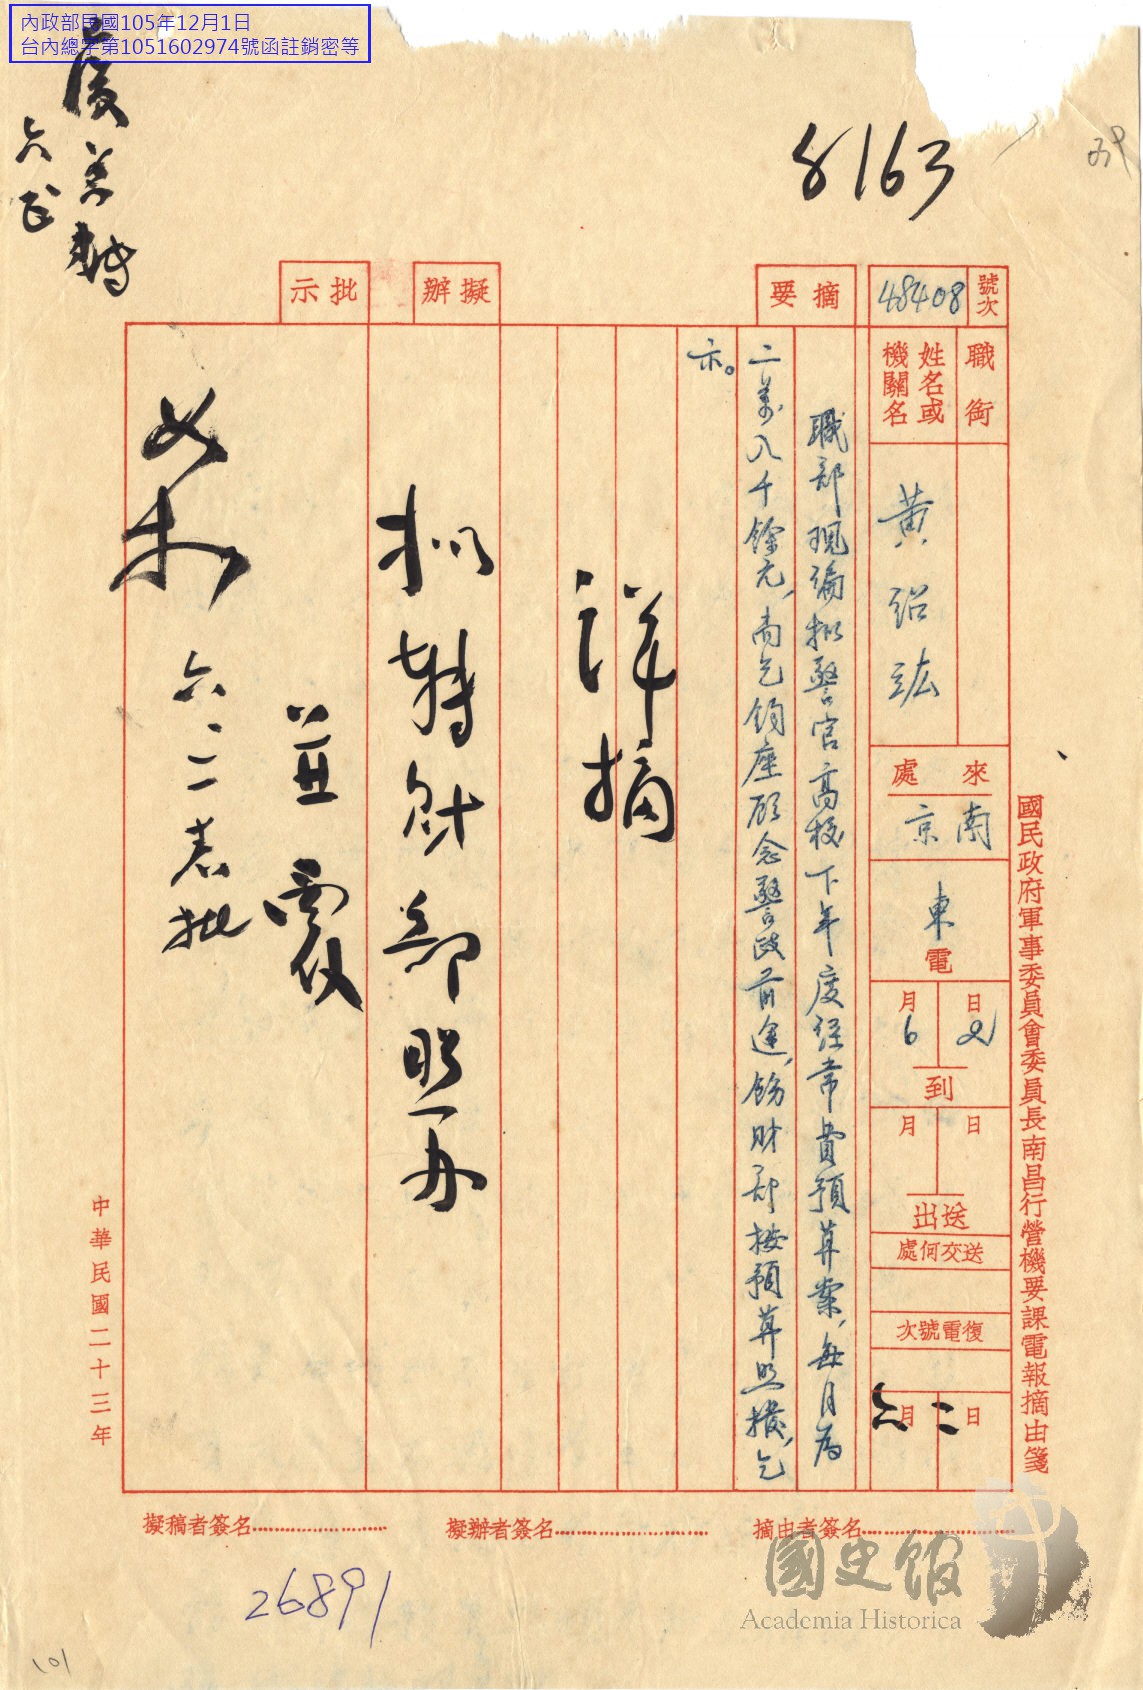 內政部民國105年12月1日
台內總字第1051602974號函註銷密等
復並轉
六、
8163
39
號次
48408
職銜
姓名或機關名
黃紹竑
來處
南京
東電
2日6月到
日月送出
送交何處
復電號次
二日六月
國民政府軍事委員會委員長南昌行營機要課電報摘由箋
摘要
職部現編擬警官高校下年度經常費預算案，每月為
二萬八千餘元，尚乞鈞座顧念警政前途，飭財部按預算照撥，乞
示。
詳摘
擬辦
擬轉財部照办
並電復
批示
如擬
六、二、
批
中華民國二十三年
摘由者簽名
擬辦者簽名
擬稿者簽名
26891
101
國史館
Academia Historica